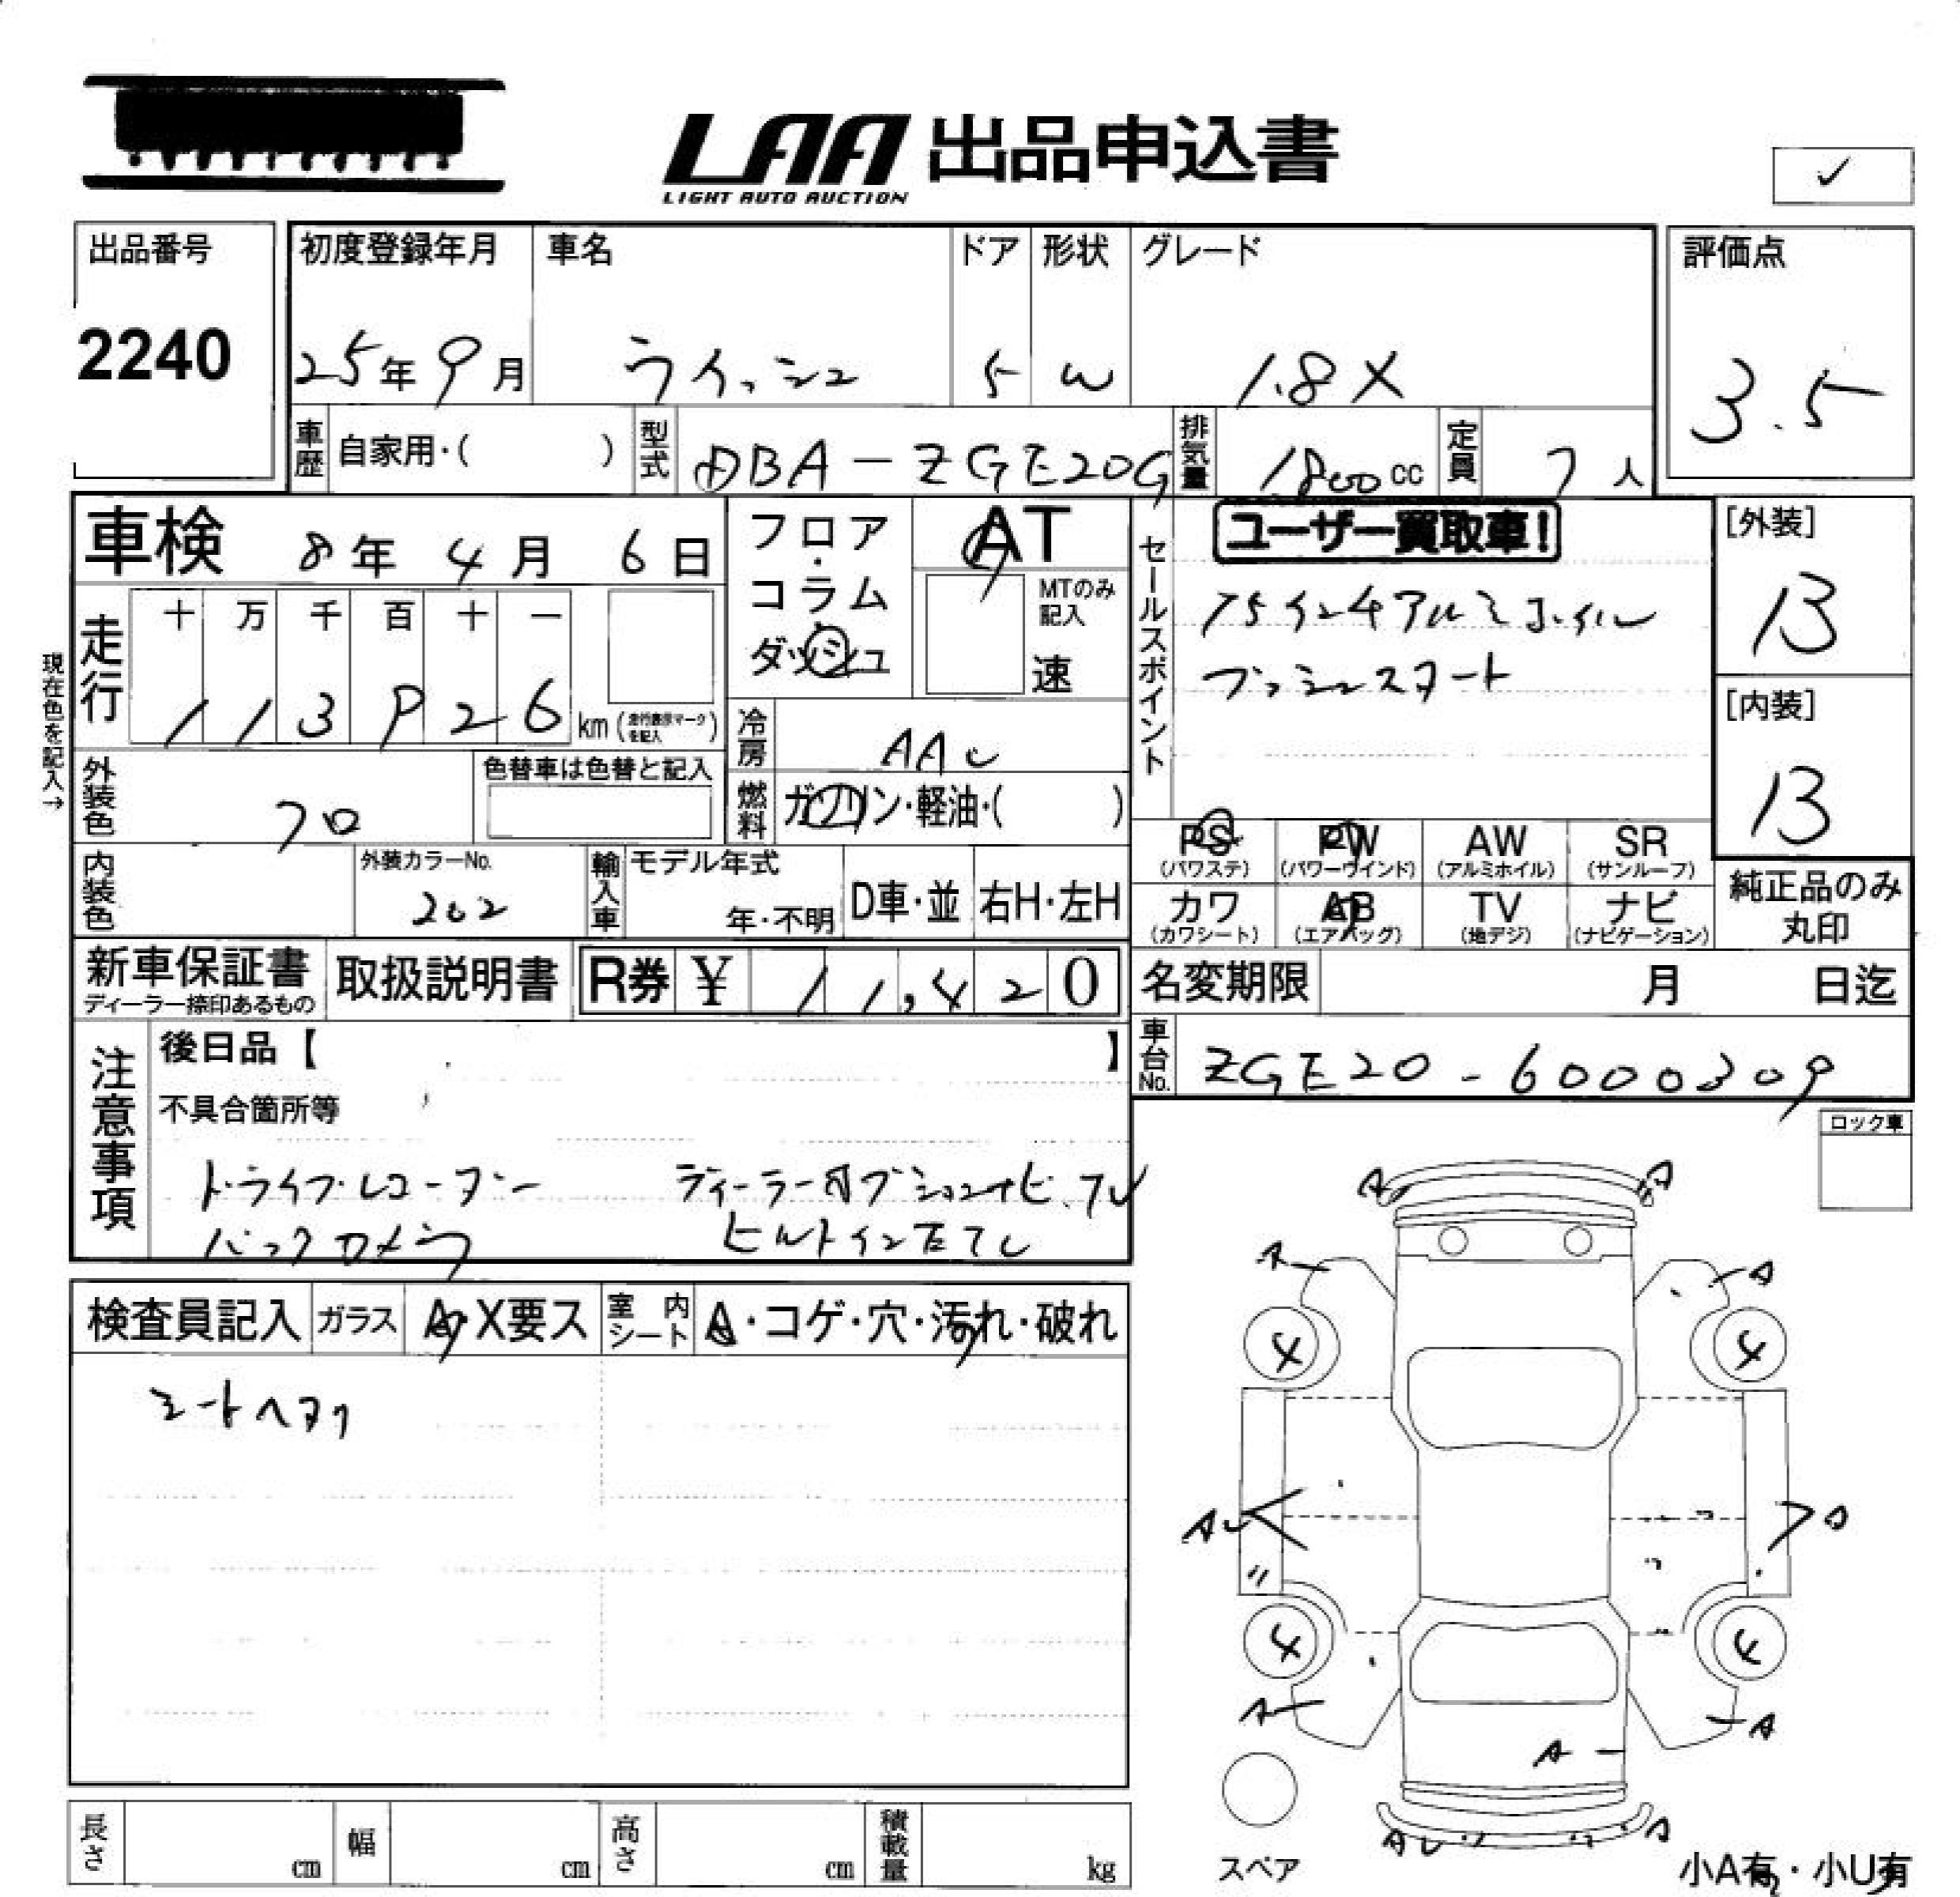 LAA 出品申込書
LIGHT AUTO AUCTION
✓
出品番号 初度登録年月 車名 ドア 形状 グレード 評価点
2240 25年 9月 ウィッシュ 5 W 1.8X 3.5
車歴 自家用・( ) 型式 DBA-ZGE20G 排気量 1800cc 定員 7人
車検 8年 4月 6日 フロア・コラム・ダッシュ AT MTのみ記入 速
セールスポイント ユーザー買取車!
15インチアルミホイル
プッシュスタート
[外装] B
[内装] B
現在色を記入→
走行 十 万 千 百 十 一
113926 km (走行表示マークを記入)
冷房 AAC
外装色 クロ 色替車は色替と記入 燃料 ガソリン・軽油・( )
PS (パワステ) PW (パワーウインド) AW (アルミホイル) SR (サンルーフ)
カワ (カワシート) AB (エアバッグ) TV (地デジ) ナビ (ナビゲーション) 純正品のみ丸印
内装色 外装カラーNo. 202 輸入車 モデル年式 年・不明 D車・並 右H・左H
新車保証書 ディーラー捺印あるもの 取扱説明書 R券 ¥ 11,420 名変期限 月 日迄
車台No. ZGE20-6000309
注意事項 後日品【 】
不具合箇所等
ドライブレコーダー ディーラーオプションナビ、TV
バックカメラ ビルトインETC
ロック車
検査員記入 ガラス A・X要ス 室内シート A・コゲ・穴・汚れ・破れ
シートヘタリ
A A
A A
4 4
AU A
4 4
A A
A
AU A
スペア
小A有・小U有
長さ cm 幅 cm 高さ cm 積載量 kg